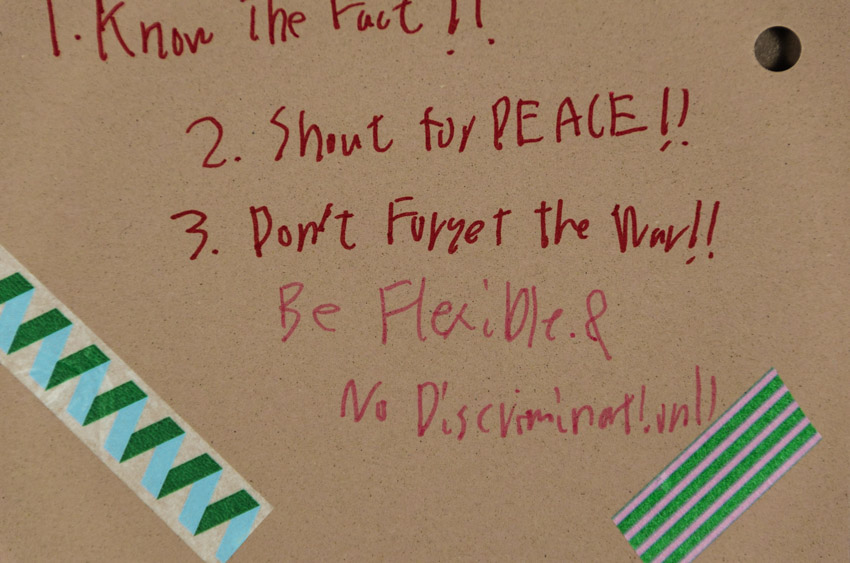 1. Know The Fact!!
2. Shout for PEACE!!
3. Don't Forget the War!!
Be Flexible. &
No Discrimination!!